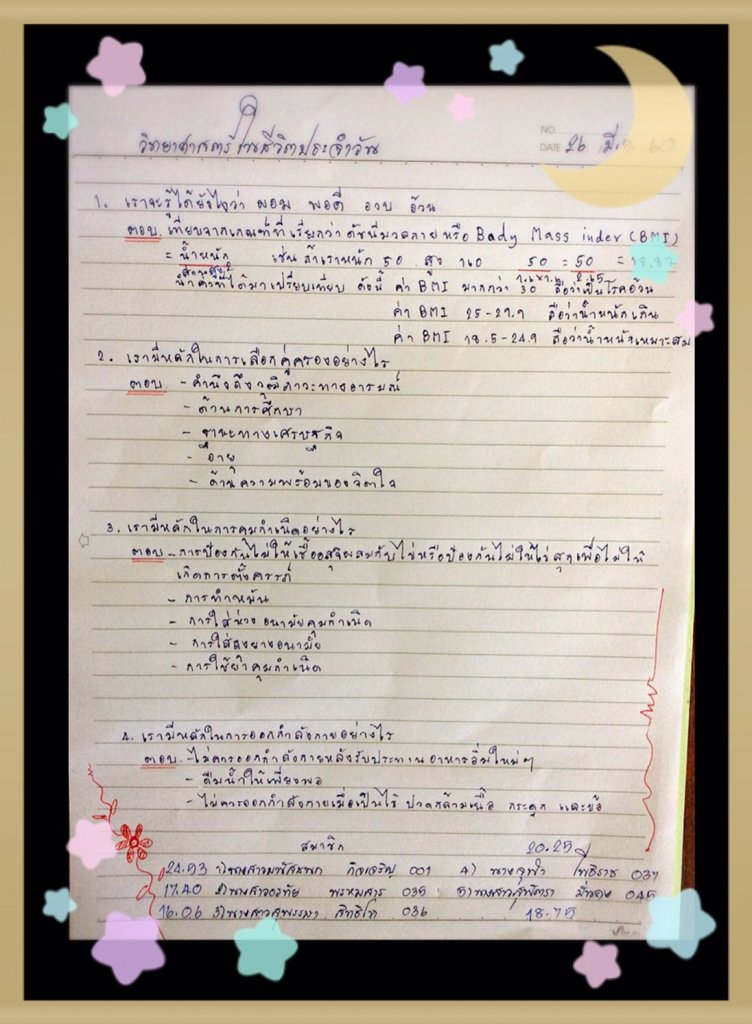 วิทยาศาสตร์ในชีวิตประจำวัน
NO.
DATE 26 มี.ค. 60
1. เราจะรู้ได้ยังไงว่า ผอม พอดี อวบ อ้วน
ตอบ. เทียบจากเกณฑ์ที่เรียกว่า ดัชนีมวลกาย หรือ Bady Mass index (BMI)
= น้ำหนัก เช่น ถ้าเราหนัก 50 สูง 160 50 = 50 =
ส่วนสูง²
นำค่าที่ได้มาเปรียบเทียบ ดังนี้ ค่า BMI มากกว่า 30 ถือว่าเป็นโรคอ้วน
ค่า BMI 25-29.9 ถือว่าน้ำหนักเกิน
ค่า BMI 18.5-24.9 ถือว่าน้ำหนักเหมาะสม
2. เรามีหลักในการเลือกคู่ครองอย่างไร
ตอบ. - คำนึงถึงวุฒิภาวะทางอารมณ์
- ด้านการศึกษา
- ฐานะทางเศรษฐกิจ
- อายุ
- ด้านความพร้อมของจิตใจ
3. เรามีหลักในการคุมกำเนิดอย่างไร
ตอบ - การป้องกันไม่ให้เชื้ออสุจิผสมกับไข่หรือป้องกันไม่ให้ไข่สุกเพื่อไม่ให้
เกิดการตั้งครรภ์
- การทำหมัน
- การใส่ห่วงอนามัยคุมกำเนิด
- การใส่ถุงยางอนามัย
- การใช้ยาคุมกำเนิด
4. เรามีหลักในการออกกำลังกายอย่างไร
ตอบ. - ไม่ควรออกกำลังกายหลังรับประทานอาหารอิ่มใหม่ๆ
- ดื่มน้ำให้เพียงพอ
- ไม่ควรออกกำลังกายเมื่อเป็นไข้ ปวดกล้ามเนื้อ กระดูก และข้อ
สมาชิก 20.25
24.53 1) นางสาว 001 4) นาง โพธิราช 037
17.40 2) นางสาวอรทัย พรหมสาร 035 5) นางสาวสุพัตรา มีแดง 045
16.06 3) นางสาวสุพรรษา สิทธิโท 036 18.75